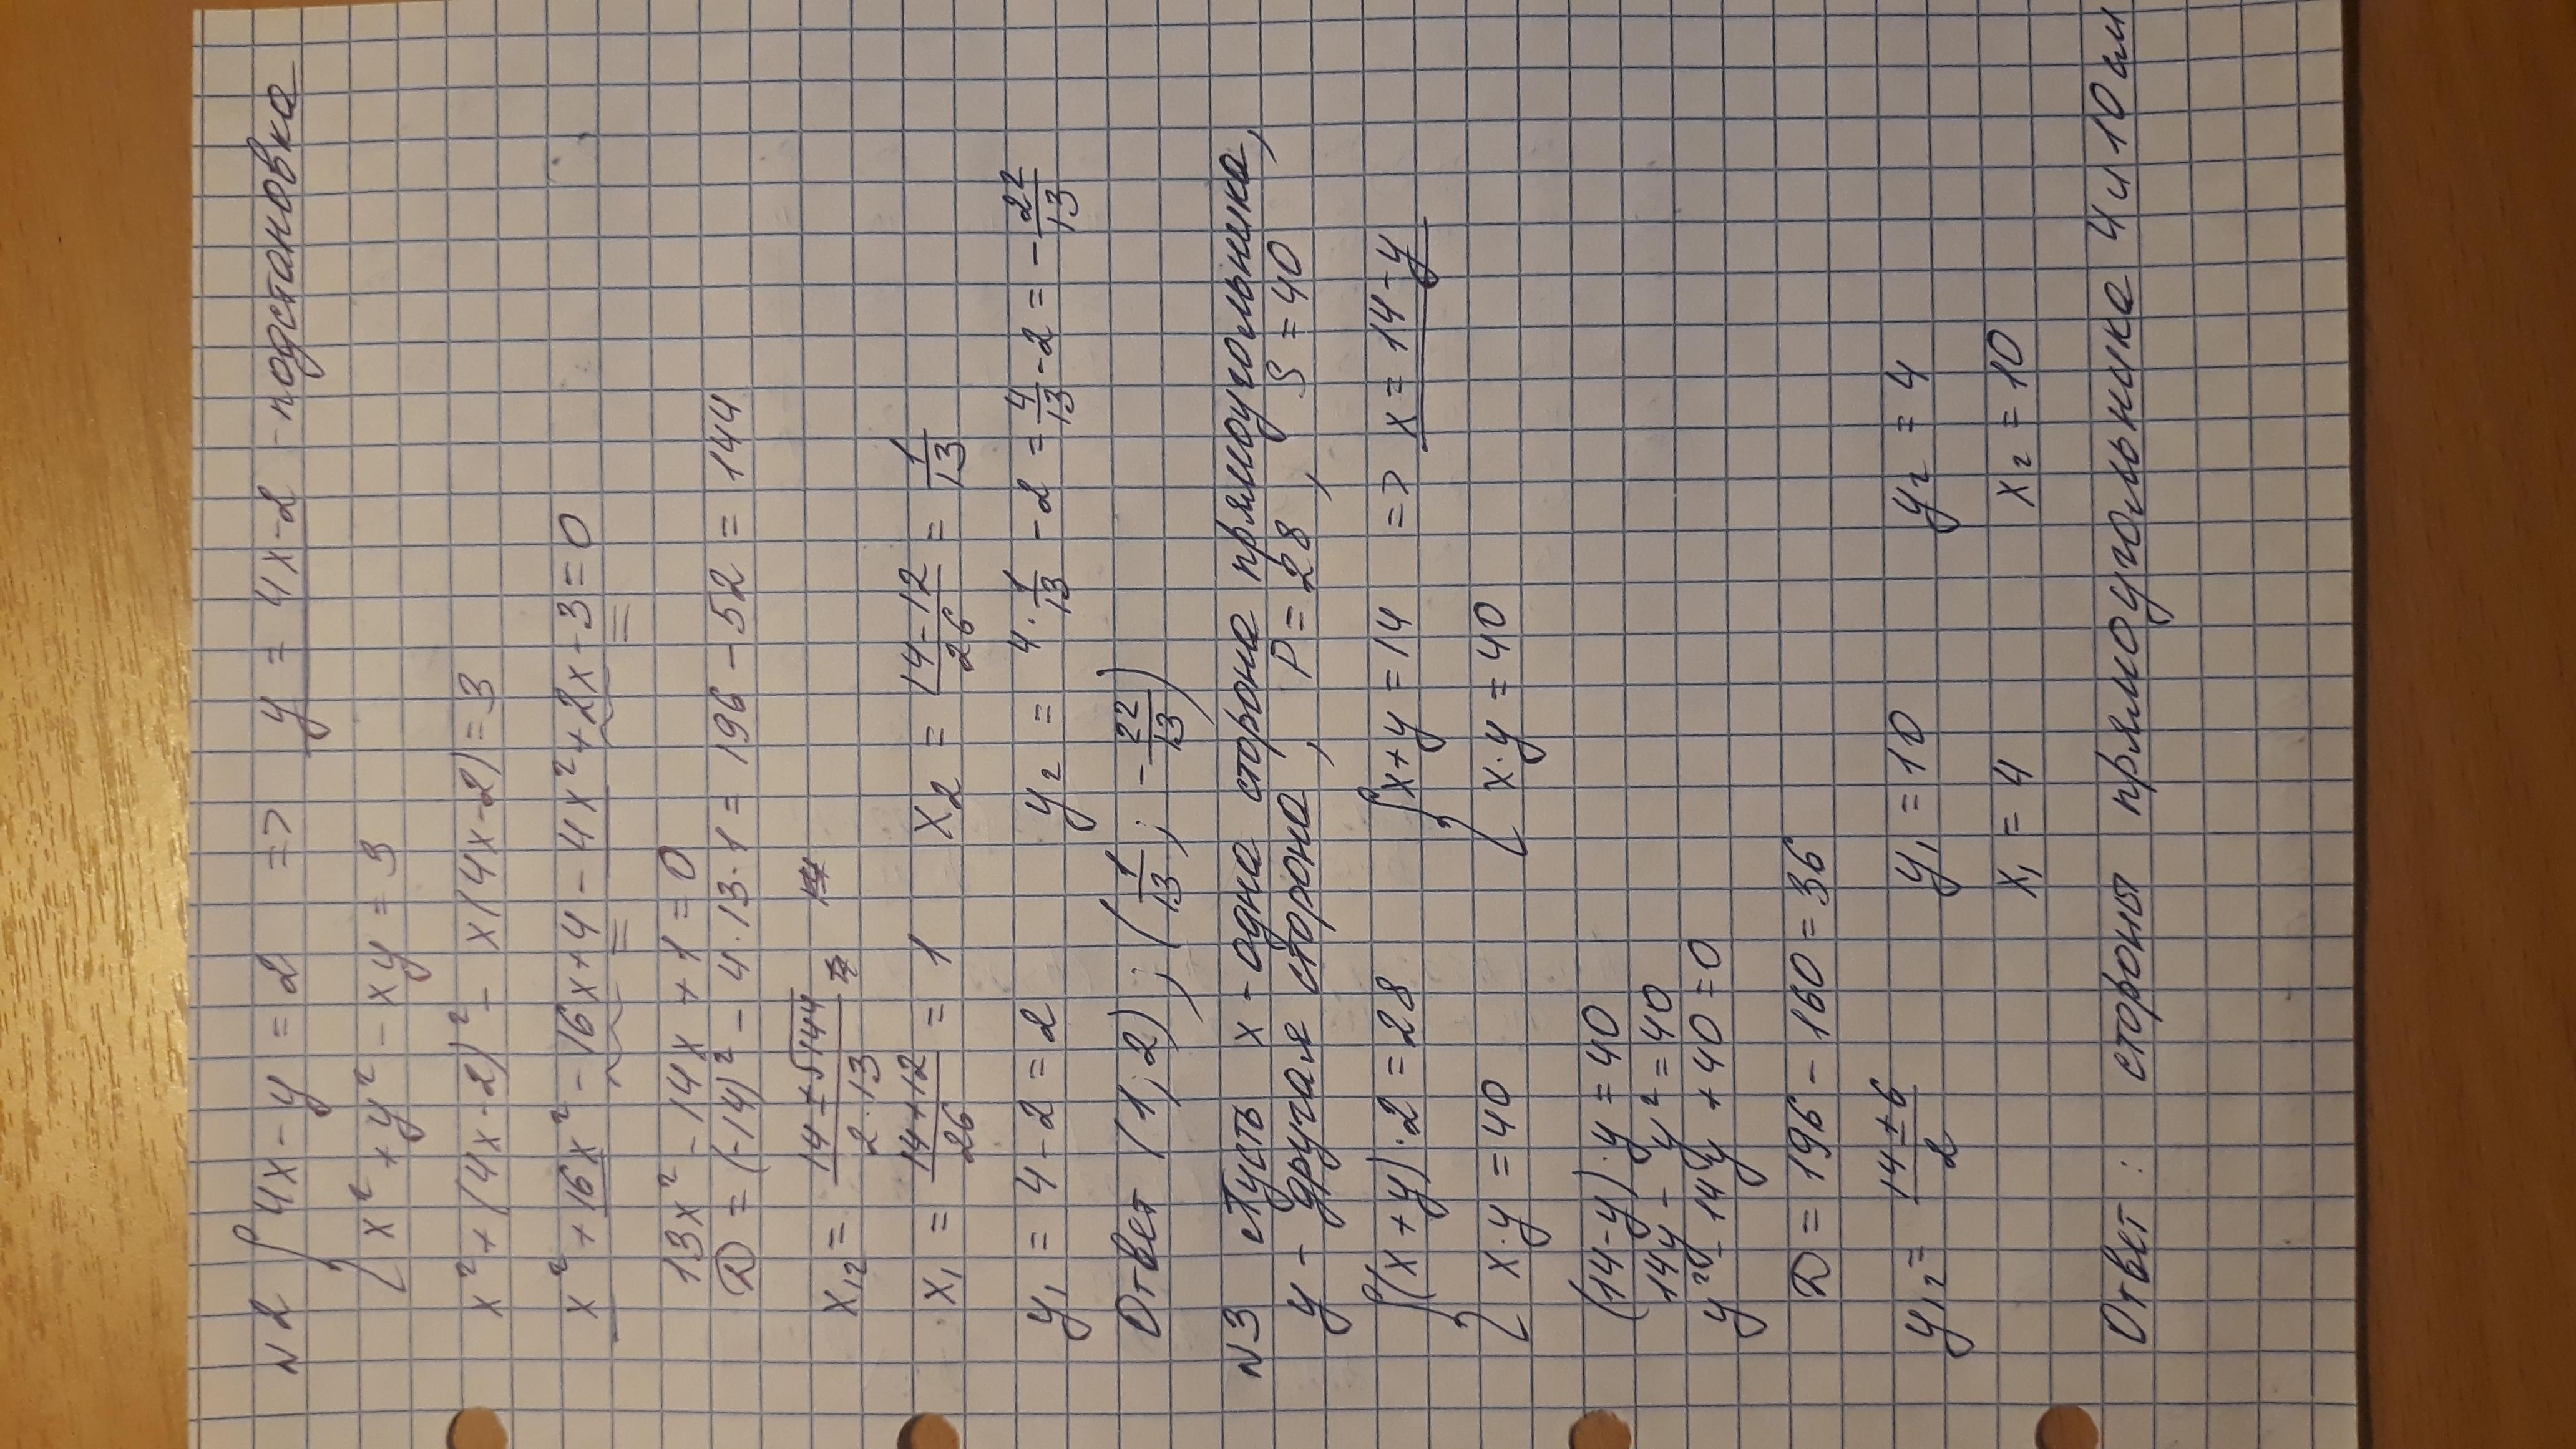 N2 { 4x - y = 2 => y = 4x-2 - подстановка
{ x² + y² - xy = 3
x² + (4x-2)² - x(4x-2) = 3
x² + 16x² - 16x + 4 - 4x² + 2x - 3 = 0
13x² - 14x + 1 = 0
D = (-14)² - 4·13·1 = 196 - 52 = 144
x₁₂ = (14 ± √144)/(2·13)
x₁ = (14+12)/26 = 1 x₂ = (14-12)/26 = 1/13
y₁ = 4 - 2 = 2 y₂ = 4·1/13 - 2 = 4/13 - 2 = -22/13
Ответ (1; 2) ; (1/13 ; -22/13)
N3 Пусть x - одна сторона прямоугольника,
y - другая сторона, P = 28, S = 40
{ (x+y)·2 = 28 { x+y = 14 => x = 14-y
{ x·y = 40 { x·y = 40
(14-y)·y = 40
14y - y² = 40
y² - 14y + 40 = 0
D = 196 - 160 = 36
y₁₂ = (14 ± 6)/2 y₁ = 10 y₂ = 4
x₁ = 4 x₂ = 10
Ответ : стороны прямоугольника 4 и 10 см